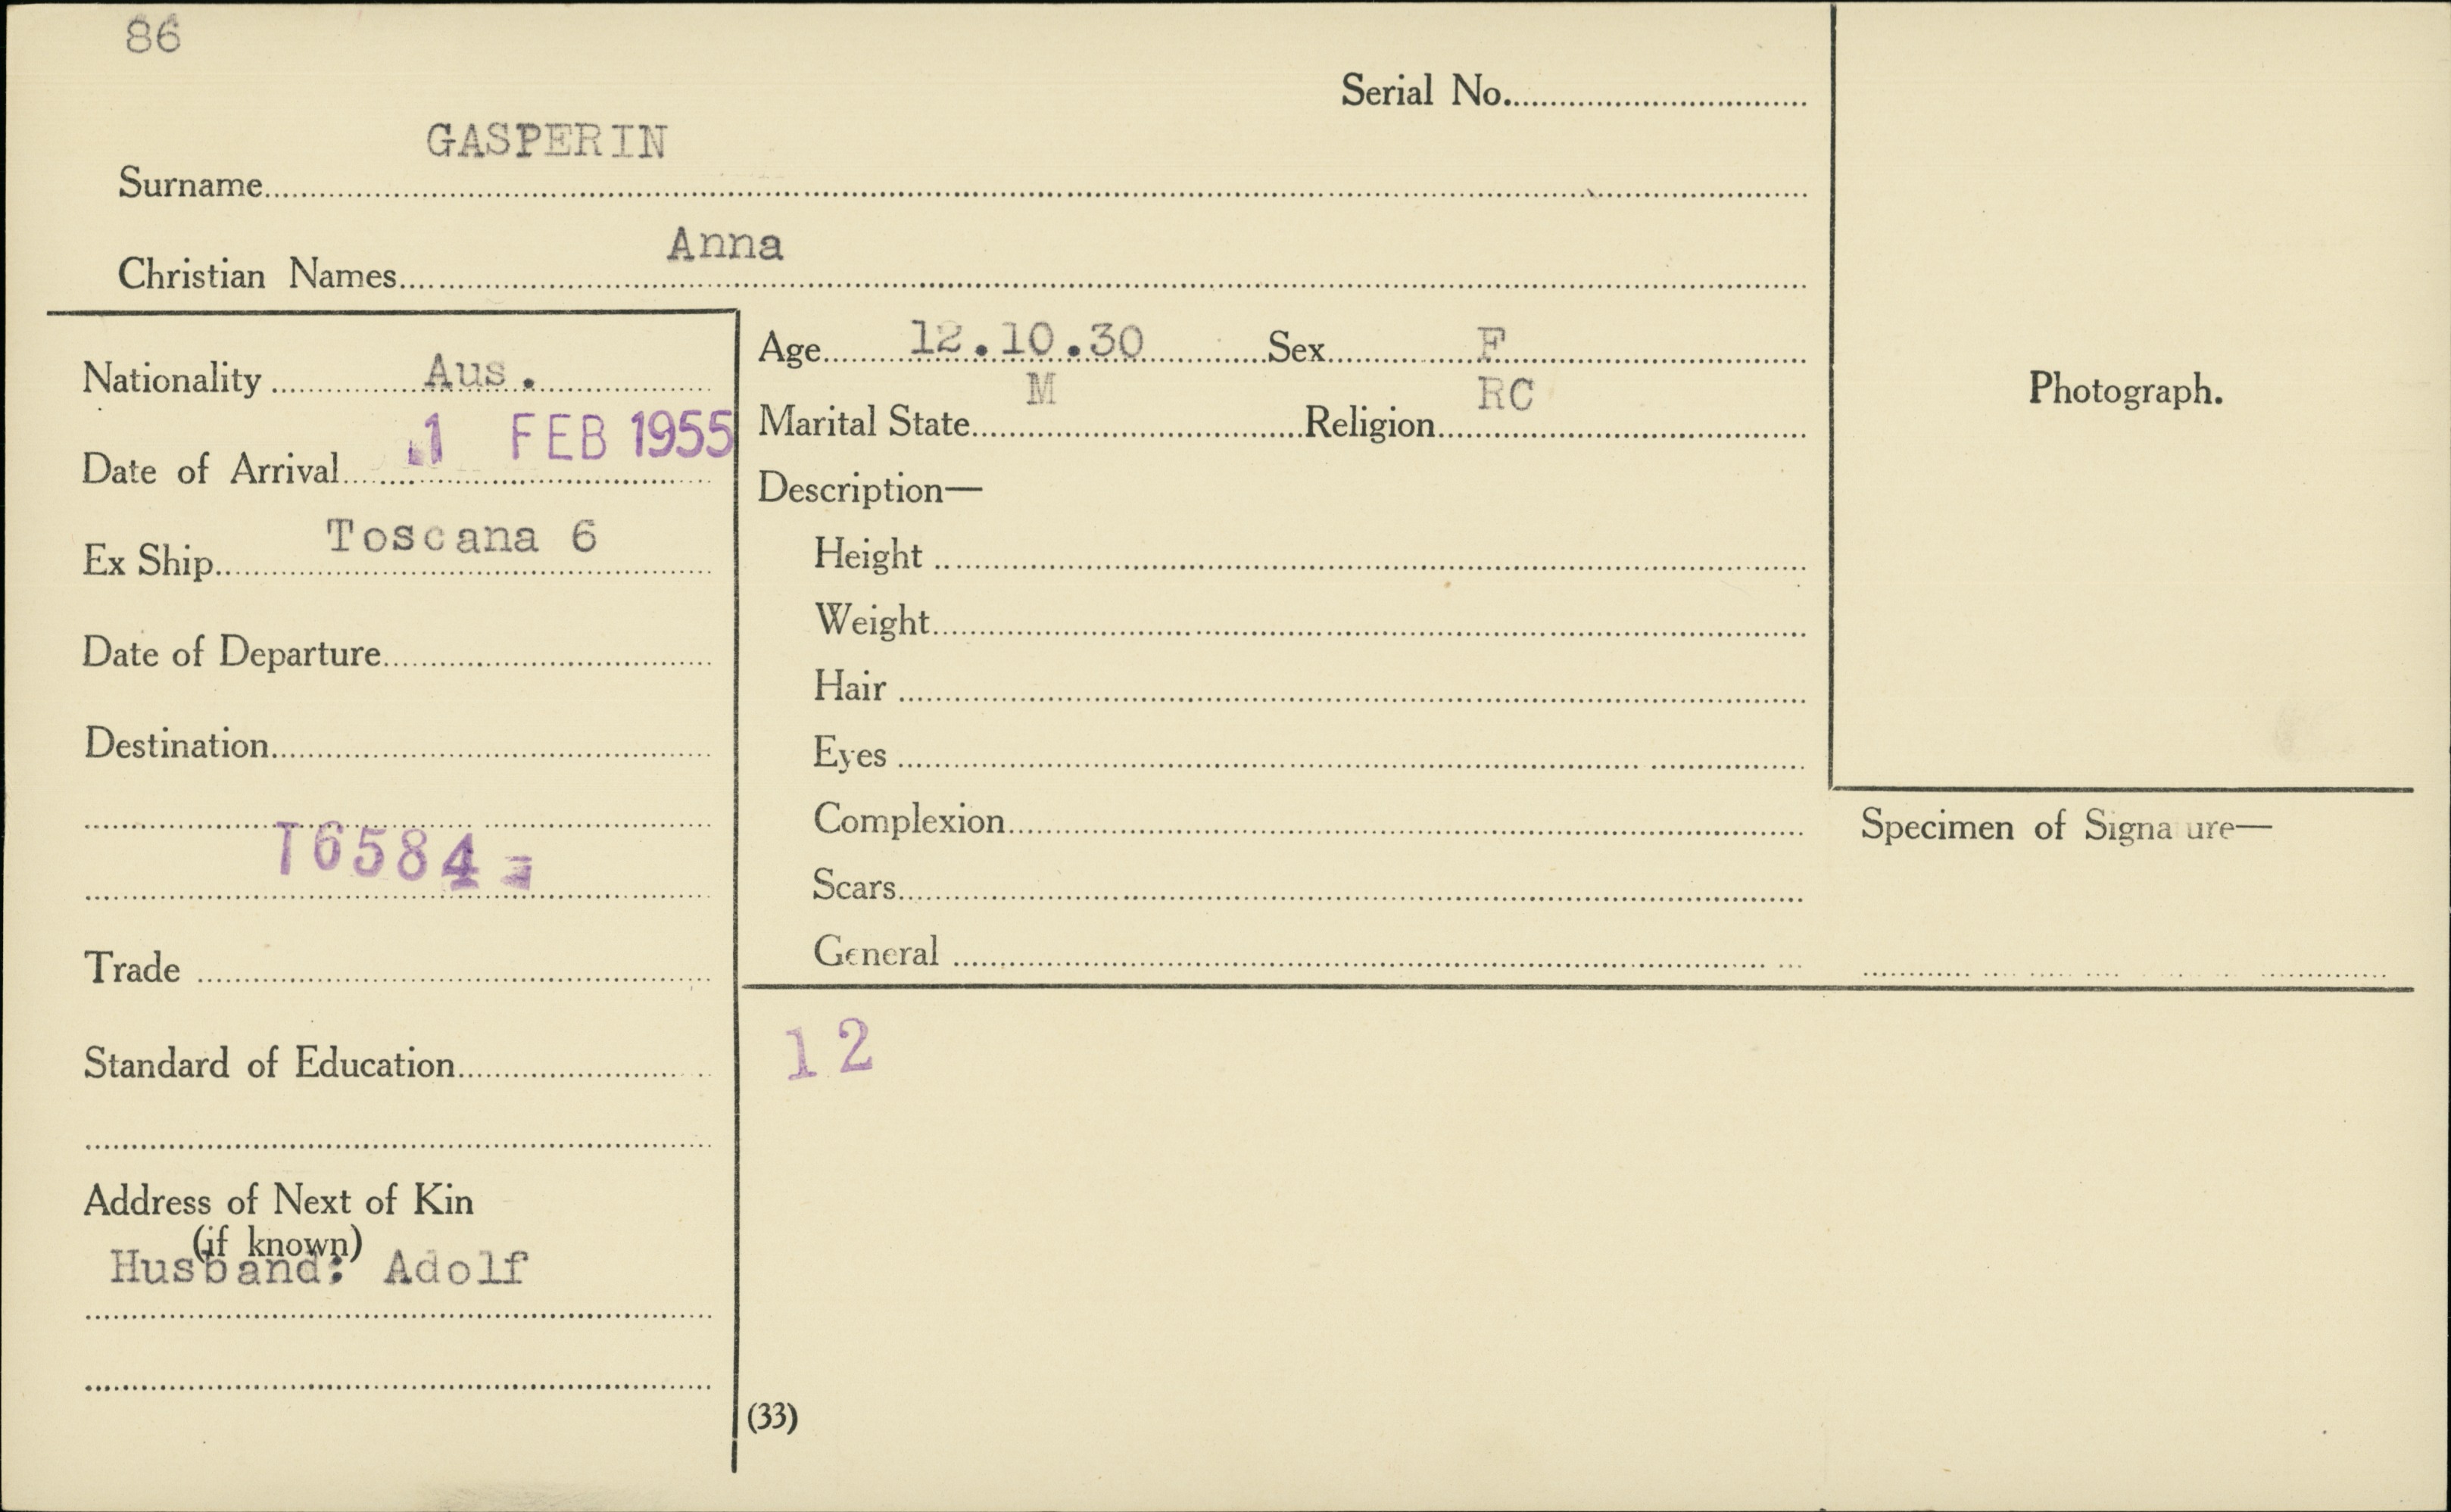 86
Serial No.
GASPERIN
Surname
Anna
Christian Names
Nationality Aus.
1 FEB 1955
Date of Arrival
Toscana 6
Ex Ship
Date of Departure
Destination
T6584
Trade
Standard of Education
Address of Next of Kin
(if known)
Husband: Adolf
Age 12.10.30 Sex F
M RC
Marital State Religion
Description—
Height
Weight
Hair
Eyes
Complexion
Scars
General
12
(33)
Photograph.
Specimen of Signa ure—